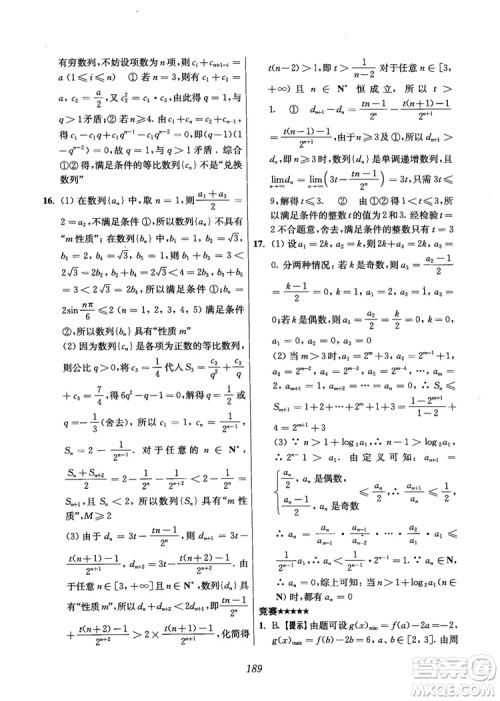 有穷数列,不妨设项数为 n 项,则 c₁+cₙ₊₁₋ᵢ=
a(1≤i≤n) ① 若 n=3,则有 c₁+c₃=
a,c₂=a/2,又 c₂²=c₁·c₃,由此得 q=1,与
q>1矛盾;② 若 n>3,由 c₁+cₙ=c₂+
cₙ₋₁,得 c₁+c₁qⁿ⁻¹=c₁q+c₁qⁿ⁻²,即(q-
1)(1-qⁿ⁻²)=0,故 q=1,与 q>1矛盾.综合
①②得,满足条件的等比数列{cₙ}不是“兑换
数列”
16. (1) 在数列{aₙ}中,取 n=1,则(a₁+a₃)/2
=2=a₂,不满足条件 ①,所以数列{aₙ}不具有
“m性质”;在数列{bₙ}中,b₁=1,b₂=√3,
b₃=2,b₄=√3,b₅=1,则 b₁+b₃=
3<2√3=2b₂,b₂+b₄=2√3<4=2b₃,b₃+b₅
=3<2√3=2b₄,所以满足条件 ①;bₙ=
2sin nπ/6≤2满足条件 ②,所以数列{bₙ}
具有“m性质”
(2) 因为数列{cₙ}是各项为正数的等比数列,
则公比 q>0,将 c₃=1/4代入 S₃=c₃/q²+c₃/q
+c₃=7/4得,6q²-q-1=0,解得 q=1/2或 q=
-1/3(舍去),所以 c₁=1,cₙ=1/2ⁿ⁻¹,
Sₙ=2-1/2ⁿ⁻¹.对于任意的 n∈N*,
(Sₙ+Sₙ₊₂)/2=2-1/2ⁿ-1/2ⁿ⁺²<2-1/2ⁿ=
Sₙ₊₁,且 Sₙ<2,所以数列{Sₙ}具有“m性
质”,M≥2
(3) 由于 dₙ=3t-(tn-1)/2ⁿ,则 dₙ₊₁=3t-
(t(n+1)-1)/2ⁿ⁺¹,dₙ₊₂=3t-(t(n+2)-1)/2ⁿ⁺².由
于任意 n∈[3,+∞)且 n∈N*,数列{dₙ}
具有“m性质”,所以 dₙ+dₙ₊₂<2dₙ₊₁即
(tn-1)/2ⁿ+(t(n+2)-1)/2ⁿ⁺²>2×(t(n+1)-1)/2ⁿ⁺¹,化简得
t(n-2)>1,即 t>1/(n-2)对于任意 n∈[3,
+∞)且 n∈N*恒成立,所以 t>
1. ① dₙ₊₁-dₙ=(tn-1)/2ⁿ-
(t(n+1)-1)/2ⁿ⁺¹=(t(n-1)-1)/2ⁿ⁺¹.由于 n∈[3,+∞)
及 ①,所以 dₙ₊₁>dₙ.
即 n≥3时,数列{dₙ}是单调递增数列,且
lim dₙ=lim(3t-(tn-1)/2ⁿ)=3t,只需 3t≤
n→∞ n→∞
9,解得 t≤3. ② 由 ①②得 1<t≤3,
所以满足条件的整数 t的值为2和3.经检验 t
=2不合题意,舍去,满足条件的整数只有 t=3
17. (1) 设 a₁=2k,a₂=k,则 k+a₃=2k,a₃=
0.分两种情况:若 k是奇数,则 a₃=(a₂-1)/2=
(k-1)/2=0,k=1,a₁=2,a₂=1,a₃=
0;若 k是偶数,则 a₃=a₂/2=k/2=0,k=0,
a₁=0,a₂=0,a₃=0
(2) 当 m>3时,a₁=2ᵐ+1,a₂=2ᵐ⁻¹,
a₃=2ᵐ⁻²,a₄=2ᵐ⁻³,…,aₘ=2,aₘ₊₁=1,
aₘ₊₂=…=aₙ=0. ∴ Sₙ≤
Sₘ₊₁=1+2+…+2ᵐ=2ᵐ⁺¹+3
(3) ∵ n>1+log₂a₁,∴ n-1>log₂a₁.
∴ 2ⁿ⁻¹>a₁.由定义可知 aₙ₊₁=
{aₙ/2,aₙ是偶数,
(aₙ-1)/2,aₙ是奇数 ∴ aₙ₊₁≤aₙ/2. ∴ aₙ₊₁/aₙ≤1/2.
∴ aₙ=aₙ/aₙ₋₁·aₙ₋₁/aₙ₋₂·…·a₂/a₁·a₁≤
1/2ⁿ⁻¹·a₁. ∴ aₙ<1/2ⁿ⁻¹·2ⁿ⁻¹=1. ∵ aₙ∈
N,∴ aₙ=0,综上可知:当 n>1+log₂a₁(n∈
N)时,都有 aₙ=0
竞赛★★★★★
1. B.【提示】由题可设 g(x)ₘₐₓ=f(a)-2a=3,
g(x)ₘᵢₙ=f(b)-2b=6,a、b∈[0,1],由周
189
答案圈